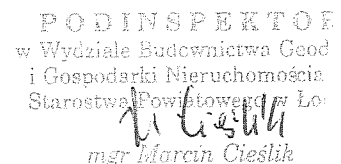 PODINSPEKTOR
w Wydziale Budownictwa Geod
i Gospodarki Nieruchomościa
Starostwa Powiatowego w Ło
M Cieślik
mgr Marcin Cieślik